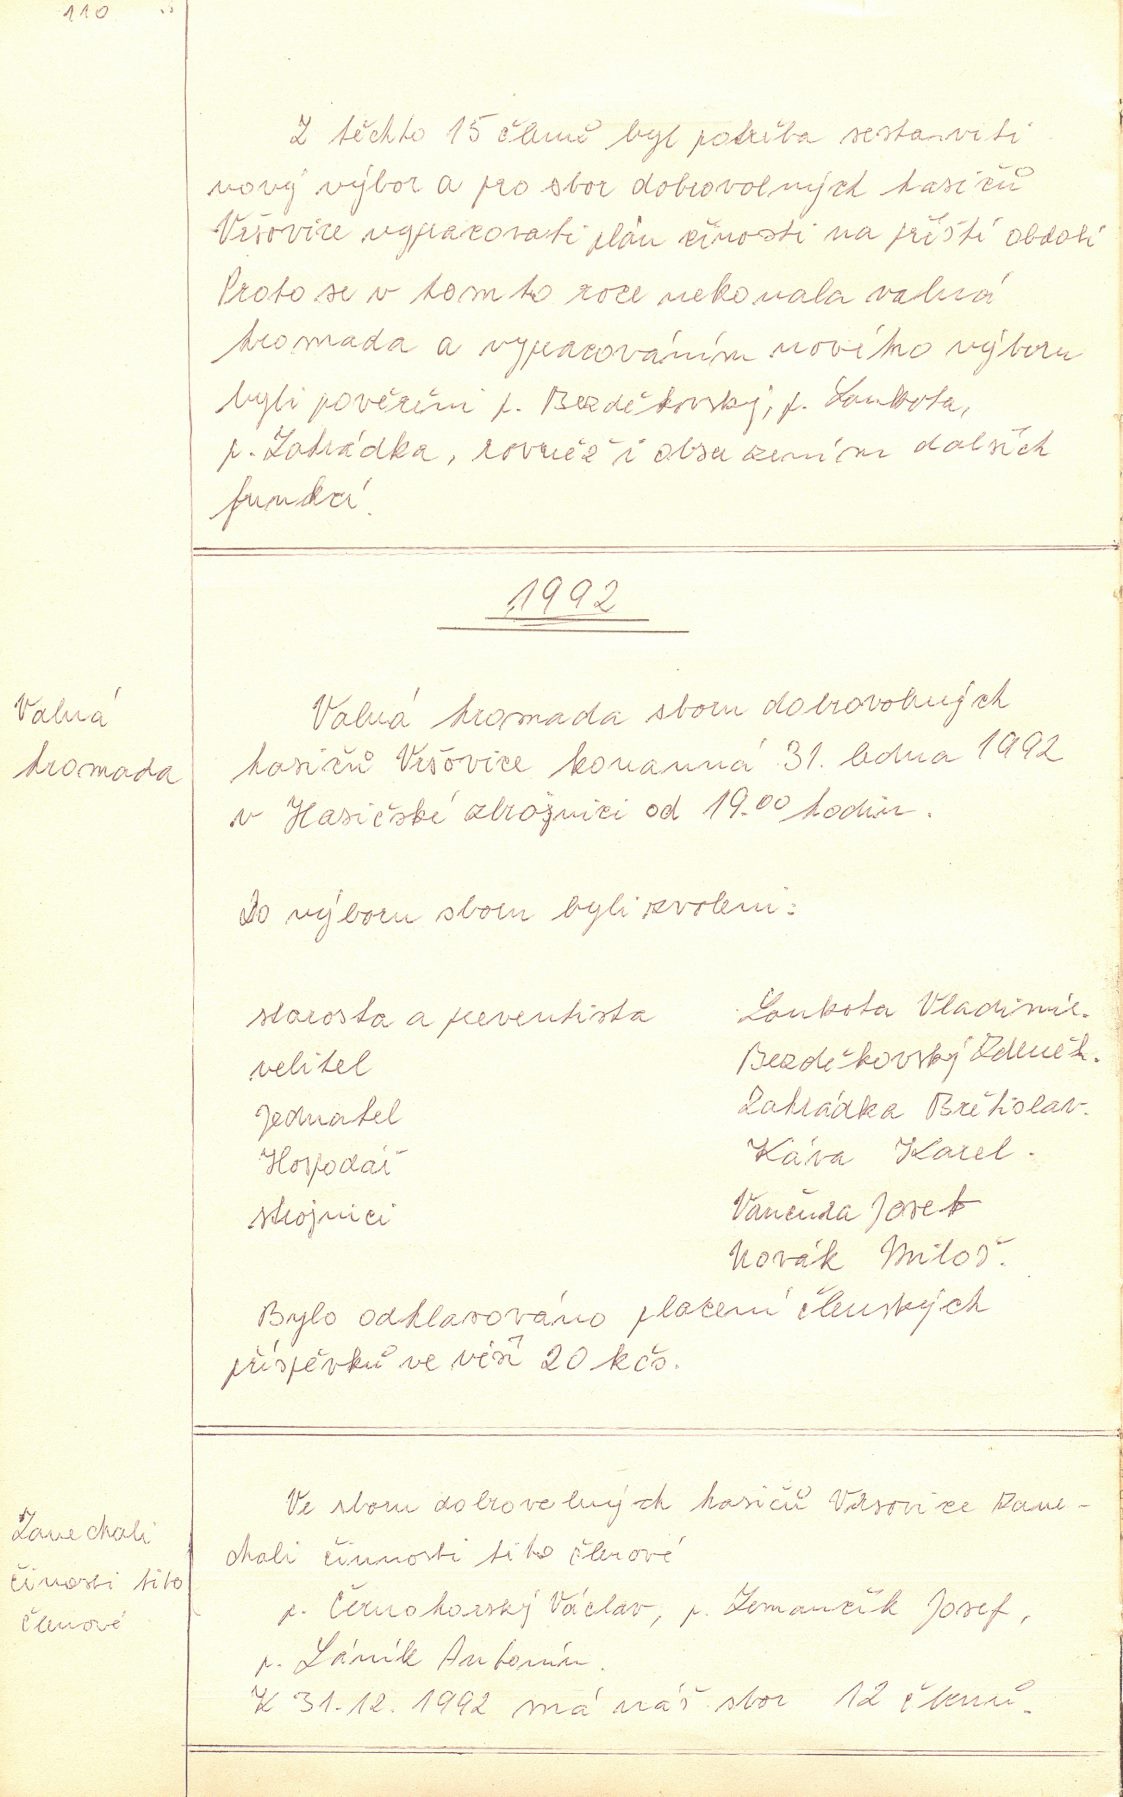 110
Z těchto 15 členů byl potřeba sestaviti
nový výbor a pro sbor dobrovolných hasičů
Vršovice vypracovati plán činosti na příští období
Proto se v tomto roce nekonala valná
hromada a vypracováním nového výboru
byli pověřeni p. Bezděkovský, p. Loukota,
p. Zahrádka, rovněž i obsazením dalších
funkcí.
1992
Valná
hromada
Valná hromada sboru dobrovolných
hasičů Vršovice konanná 31. ledna 1992
v Hasičské zbrojnici od 19.00 hodin.
Do výboru sboru byli zvoleni:
starosta a preventista Loukota Vladimír.
velitel Bezděkovský Zdeněk.
Jednatel Zahrádka Břetislav.
Hospodář Káva Karel.
strojníci Vančura Josef
Novák Miloš.
Bylo odhlasováno placení členských
příspěvků ve věší 20 kčs.
Zanechali
činosti tito
členové
Ve sboru dobrovolných hasičů Vršovice zane-
chali činnosti tito členové
p. Černohorský Václav, p. Zemančík Josef,
p. Láník Antonín.
K 31.12. 1992 má náš sbor 12 členů.